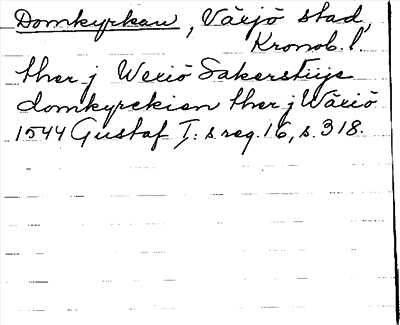 Domkyrkan, Växjö stad,
Kronob. l.
ther j Wexiö Sakerstije
domkyrckien ther j Wäxiö
1544 Gustaf I: s reg. 16, s. 318.